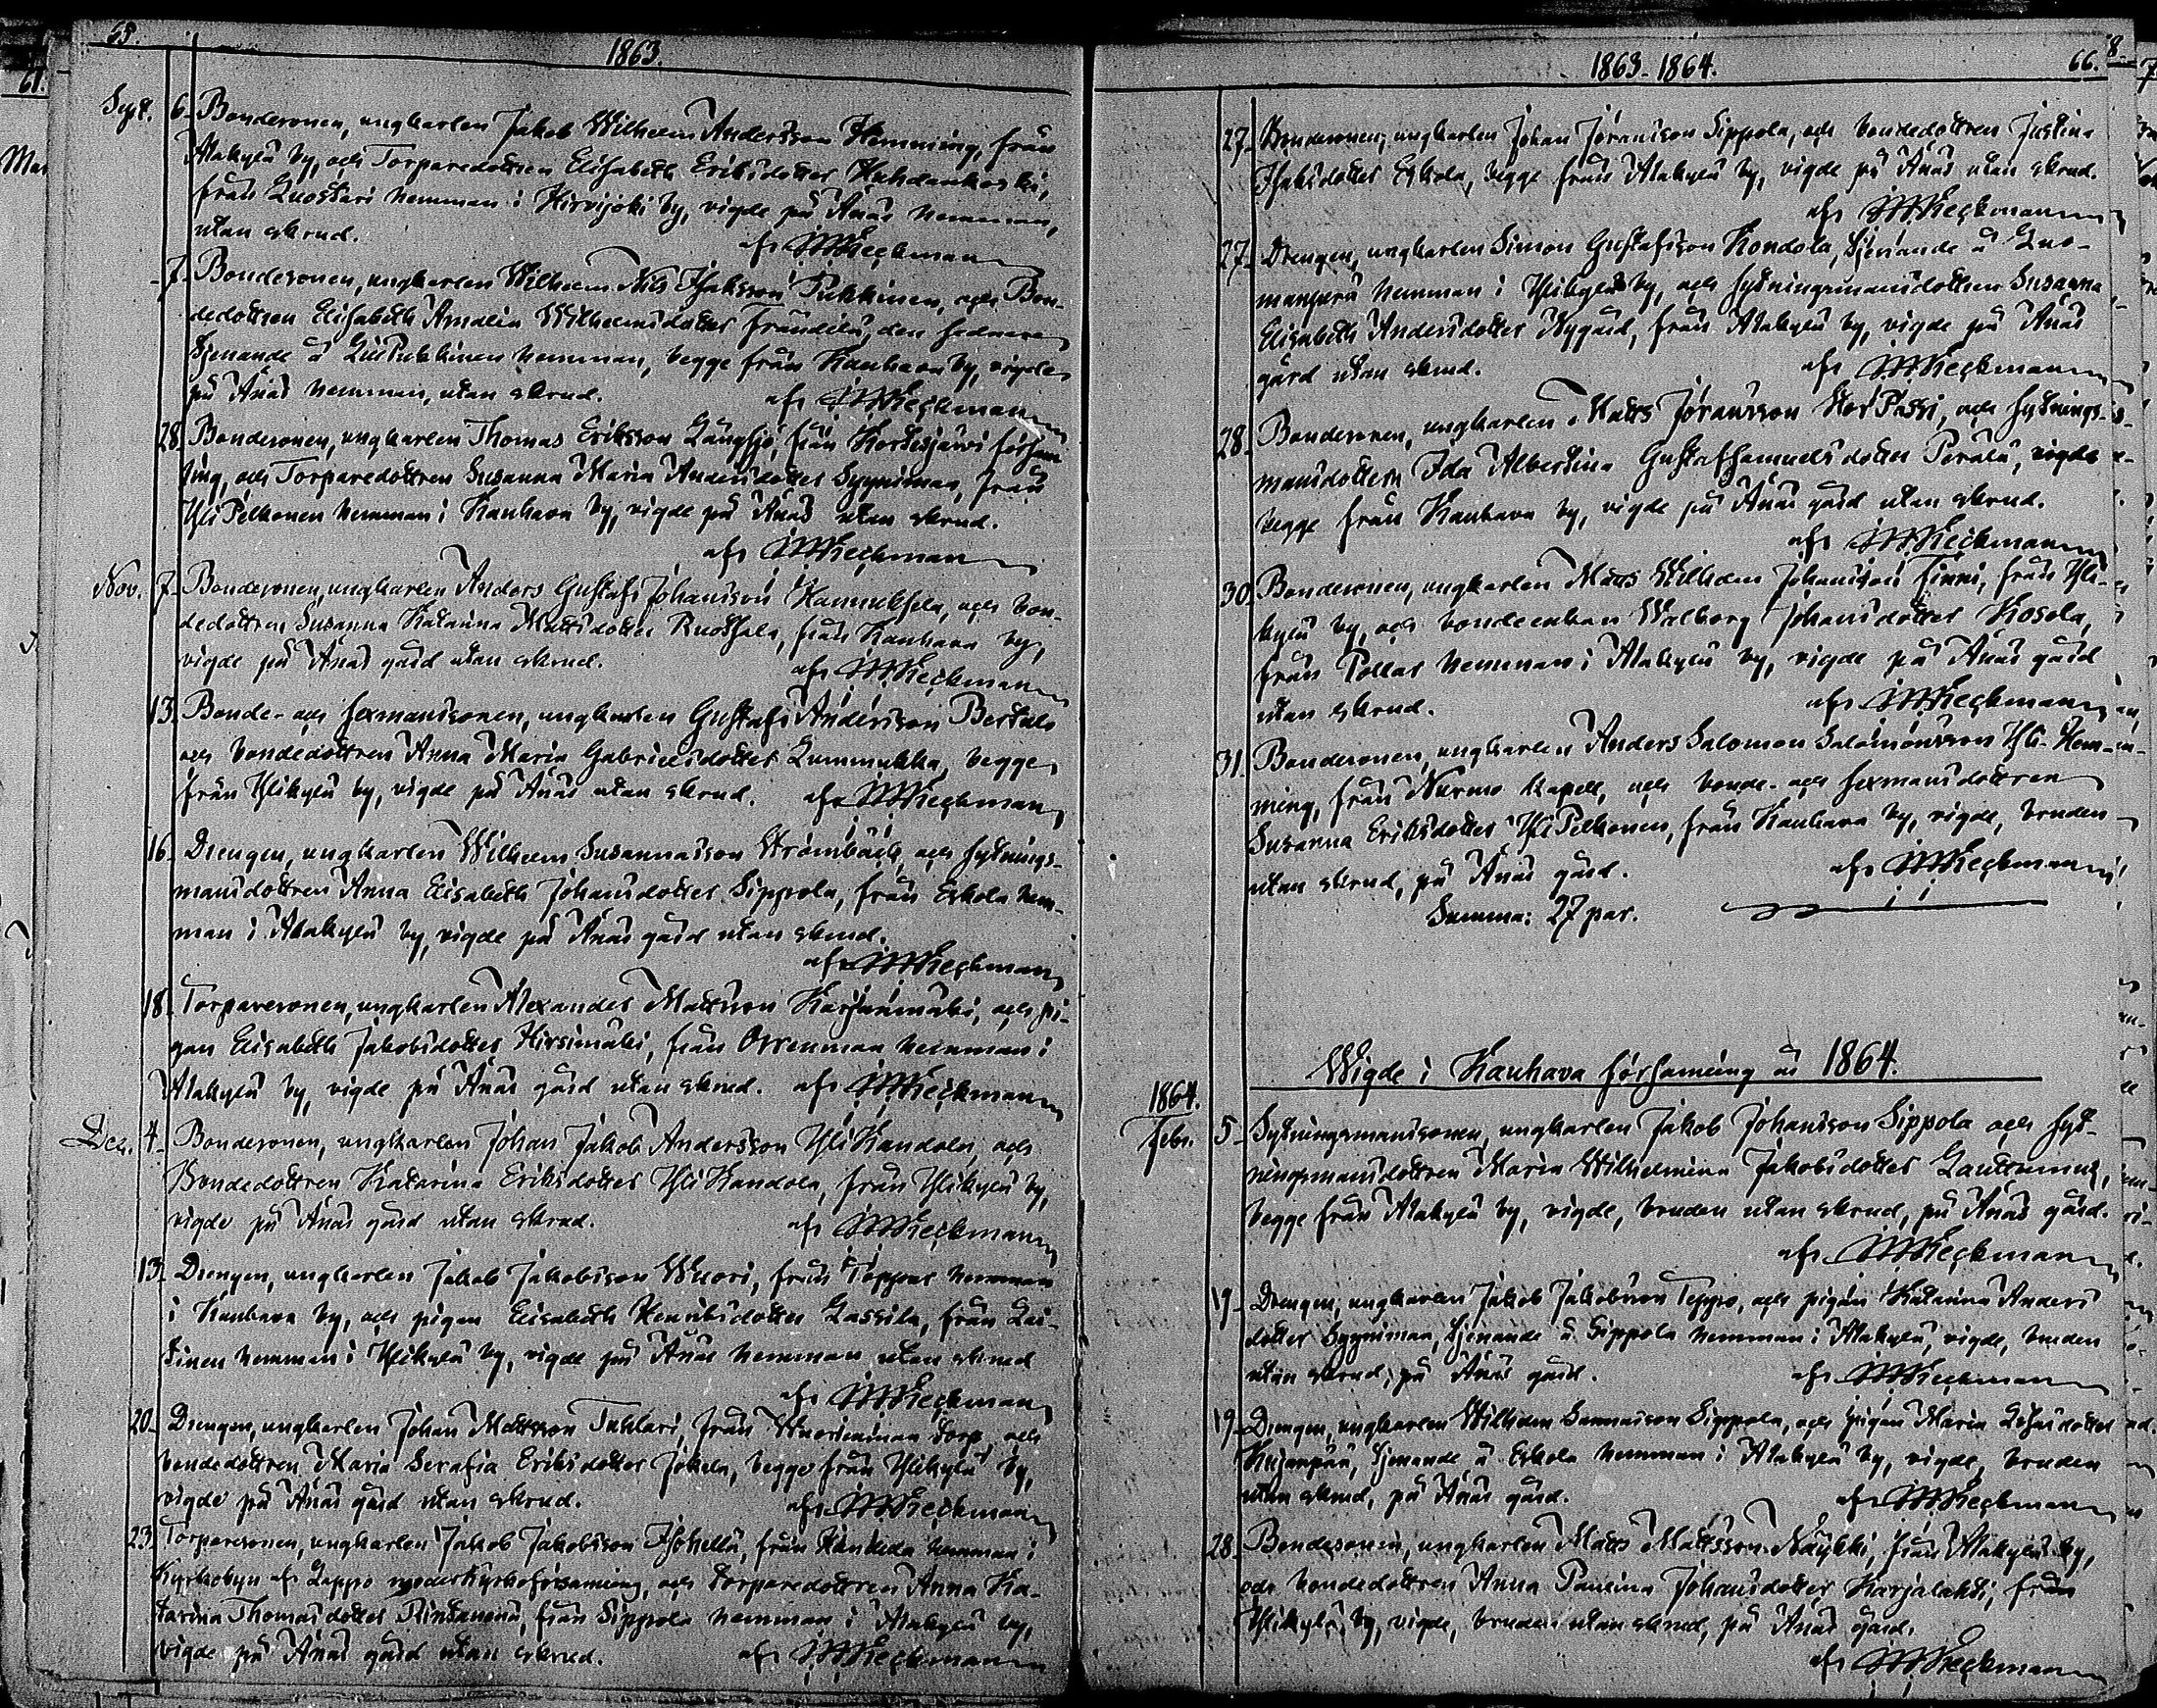 65.
1863.
Sept. 6. Bondesonen, ungkarlen Jakob Wilhelm Andersson Hemming, från
Alakylä by, och Torparedottren Elisabeth Eriksdotter
från Luostari hemman i Hirvijoki by, vigde på Ånäs hemman,
utan skrud. af
7. Bondesonen, ungkarlen Wilhelm Nils Isaksson Pukkinen, och Bon-
dedottren Elisabeth Amalia Wilhelmsdotter Frändilä, den sednare
tjenande å LillPukkinen hemman, begge från Kauhava by, vigde
på Ånäs hemman, utan skrud. af
28. Bondesonen, ungkarlen Thomas Eriksson Långsjö, från Kortesjärvi försam
ling, och Torparedottren Susanna Maria Andersdotter Syynimaa, från
YliPelkonen hemman i Kauhava by, vigde på Ånäs utan skrud.
af
Nov. 7. Bondesonen, ungkarlen Anders Gustaf Johansson Hannuksela, och bon-
dedottren Susanna Katarina Mattsdotter Ruotsala, från Kauhava by,
vigde på Ånäs gård utan skrud. af
13. Bonde- och sexmanssonen, ungkarlen Gustaf Andersson Bertula
och bondedottren Anna Maria Gabrielsdotter Lummukka, begge
från Ylikylä by, vigde på Ånäs utan skrud. af
16. Drengen, ungkarlen Wilhelm Susannasson Strömbäck, och sytnings-
mansdottren Anna Elisabeth Johansdotter Sippola, från Eskola hem-
man i Alakylä by, vigde på Ånäs gård utan skrud.
af
18. Torparesonen, ungkarlen Alexander Mattsson Karjanmäki, och pi-
gan Elisabeth Jakobsdotter Hirsimäki, från Orrenmaa hemman i
Alakylä by, vigde på Ånäs gård utan skrud. af
Dec. 4. Bondesonen, ungkarlen Johan Jakob Andersson YliKandola, och
Bondedottren Katarina Eriksdotter YliKandola, från Ylikylä by,
vigde på Ånäs gård utan skrud. af
13. Drengen, ungkarlen Jakob Jakobsson Wuori, från Toppar hemman
i Kauhava by, och pigan Elisabeth Henriksdotter Lassila, från Lai-
tinen hemman i Ylikylä by, vigde på Ånäs hemman utan skrud
af
20. Drengen, ungkarlen Johan Mattsson Tuhlari, från torp och
bondedottren Maria Serafia Eriksdotter Jokela, begge från Ylikylä by,
vigde på Ånäs gård utan skrud. af
23. Torparesonen, ungkarlen Jakob Jakobsson Isohella, från hemman i
Kyrkobyn af Lappo moderkyrkoförsamling, och torparedottren Anna Ka-
tarina Thomasdotter Rintanenä, från Sippola hemman i Alakylä by,
vigde på Ånäs gård utan skrud. af
1863-1864.
66.
27. Bondesonen, ungkarlen Johan Jöransson Sippola, och bondedottren Justina
Isaksdotter Eskola, begge från Alakylä by, vigde på Ånäs utan skrud.
af
27. Drengen, ungkarlen Simon Gustafsson Kondola, tjenande å Luo-
manperä hemman i Ylikylä by, och sytningsmansdottren Susanna
Elisabeth Andersdotter Nygård, från Alakylä by, vigde på Ånäs
gård utan skrud. af
28. Bondesonen, ungkarlen Matts Jöransson StorPassi, och sytnings-
mansdottern Ida Albertina Gustafsamuelsdotter Perälä, vigde
begge från Kauhava by, vigde på Ånäs gård utan skrud.
af
30. Bondesonen, ungkarlen Matts Wilhelm Johansson Finni, från Yli-
kylä by, och bondeenkan Walborg Johansdotter Kosola,
från Pollar hemman i Alakylä by, vigde på Ånäs gård
utan skrud. af
31. Bondesonen, ungkarlen Anders Salomon Salomonsson Yli-Hem-
ming, från Nurmo kapell, och bonde- och sexmansdottren
Susanna Eriksdotter YliPelkonen, från Kauhava by, vigde, bruden
utan skrud, på Ånäs gård. af
Summa: 27 par.
Wigde i Kauhava församling år 1864.
1864.
Febr. 5. Sytningsmanssonen, ungkarlen Jakob Johansson Sippola och syt-
ningsmansdottren Maria Wilhelmina Jakobsdotter
begge från Alakylä by, vigde, bruden utan skrud, på Ånäs gård.
af
19. Drengen, ungkarlen Jakob Jakobsson Teppo, och pigan Katarina Anders
dotter Syynimaa, tjenande å Sippola hemman i Alakylä, vigde, bruden
utan skrud, på Ånäs gård. af
19. Drengen, ungkarlen Wilhelm Sannasson Sippola, och pigan Maria
Kujanpää, tjenande å Eskola hemman i Alakylä by, vigde, bruden
utan skrud, på Ånäs gård. af
28. Bondesonen, ungkarlen Matts Mattsson Näykki, från Alakylä by,
och bondedottren Anna Paulina Johansdotter Karjalahti, från
Ylikylä by, vigde, bruden utan skrud, på Ånäs gård.
af